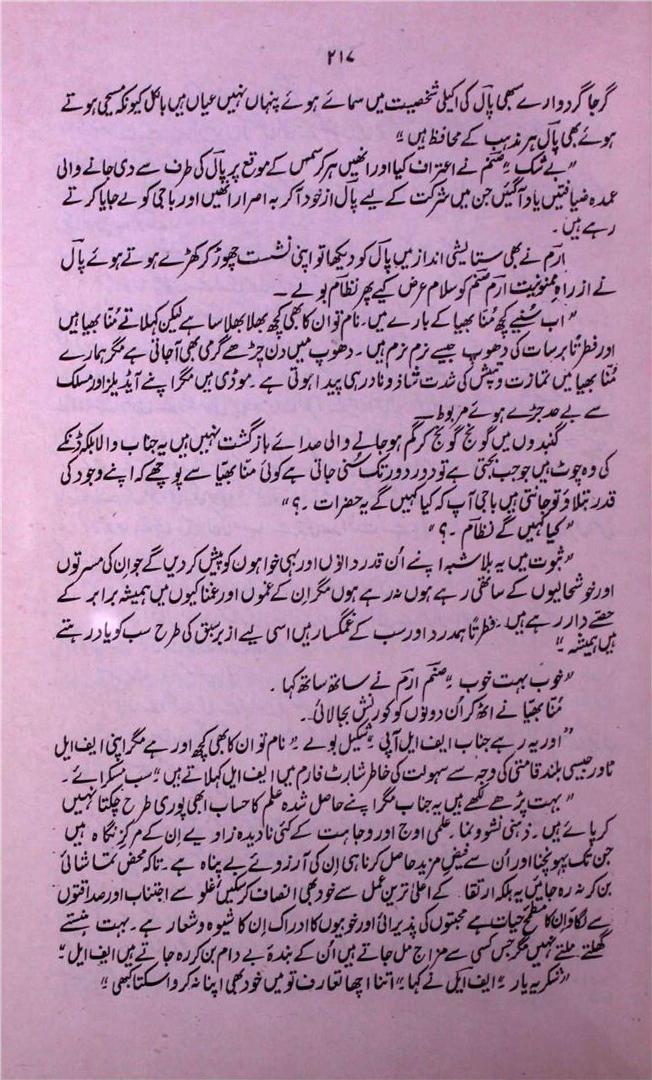 ۲۱۷
گرجا گردوارے سبھی پال کی اکیلی شخصیت میں سمائے ہوئے پنہاں نہیں عیاں ہیں بالکل کیونکہ مسیحی ہوتے
ہوئے بھی پال ہر مذہب کے محافظ ہیں ۔"
"بے شک ۔" صنم نے اعتراف کیا اور انھیں ہر کرسمس کے موقع پر پال کی طرف سے دی جانے والی
عمدہ ضیافتیں یاد آ گئیں جن میں شرکت کے لیے پال از خود آ کر بہ اصرار انھیں اور باجی کو لے جایا کرتے
رہے ہیں ۔
ارم نے بھی ستایشی انداز میں پال کو دیکھا تو اپنی نشست چھوڑ کر کھڑے ہوتے ہوئے پال
نے از راہِ ممنونیت ارم صنم کو سلام عرض کیے پھر نظام بولے ـــ
"اب سُنیے کچھ مُنّا بھیا کے بارے میں ۔ نام تو ان کا بھی کچھ بھلا بھلا سا ہے لیکن کہلاتے مُنّا بھیا ہیں
اور فطرتاً برسات کی دھوپ جیسے نرم نرم ہیں ۔ دھوپ میں دن چڑھے گرمی بھی آ جاتی ہے مگر ہمارے
مُنّا بھیا میں تمازت و تپش کی شدت شاذ و نادر ہی پیدا ہوتی ہے ۔ موڈی ہیں مگر اپنے آئیڈیلز اور مسلک
سے بے حد جڑے ہوئے مربوط ـــ
گنبدوں میں گونج گونج کر گم ہو جانے والی صدائے بازگشت نہیں ہیں یہ جناب والا بلکہ ڈنکے
کی وہ چوٹ ہیں جو جب بجتی ہے تو دور دور تک سُنی جاتی ہے کوئی مُنّا بھیّا سے پوچھے کہ اپنے وجود کی
قدر بتلاؤ تو جانتی ہیں باجی آپ کہ کیا کہیں گے یہ حضرات ۔؟"
"کیا کہیں گے نظام ۔؟"
"ثبوت میں یہ بلاشبہ اپنے اُن قدر دانوں اور بہی خواہوں کو پیش کر دیں گے جو ان کی مسرتوں
اور خوشحالیوں کے ساتھی رہے ہوں نہ رہے ہوں مگر ان کے غموں اور غمناکیوں میں ہمیشہ برابر کے
حصّے دار رہے ہیں ۔ فطرتاً ہمدرد اور سب کے غمگسار ہیں اسی لیے از بر سبق کی طرح سب کو یاد رہتے
ہیں ہمیشہ ۔"
"خوب بہت خوب ۔" صنم ارم نے ساتھ ساتھ کہا ۔
مُنّا بھیّا نے اٹھ کر اُن دونوں کو کورنش بجا لائی ۔۔
"اور یہ رہے جناب ایف ایل آپی ۔" شکیل بولے ۔ "نام تو ان کا بھی کچھ اور ہے مگر اپنی ایف ایل
ٹاور جیسی بلند قامتی کی وجہ سے سہولت کی خاطر شارٹ فارم میں ایف ایل کہلاتے ہیں ۔" سب مسکرائے ۔
"بہت پڑھے لکھے ہیں یہ جناب مگر اپنے حاصل شدہ علم کا حساب ابھی پوری طرح چکتا نہیں
کر پائے ہیں ۔ ذہنی نشوونما ۔ علمی اوج اور وجاہت کے کئی نادیدہ زاویے ان کے مرکزِ نگاہ ہیں
جن تک پہونچنا اور اُن سے فیض مزید حاصل کرنا ہی اِن کی آرزوئے بے پناہ ہے ۔ تاکہ محض تماشائی
بن کر نہ رہ جائیں بلکہ ارتقا کے اعلیٰ ترین عمل سے خود بھی انصاف کر سکیں غلو سے اجتناب اور صداقتوں
سے لگاؤ ان کا مطمحِ حیات ہے محبتوں کی پذیرائی اور خوبیوں کا ادراک اِن کا شیوہ و شعار ہے ۔ بہت ہنستے
گھلتے ملتے نہیں مگر جس کسی سے مزاج مل جاتے ہیں اُن کے بندۂ بے دام بن کر رہ جاتے ہیں ایف ایل ۔"
"شکریہ یار ۔" ایف ایل نے کہا ۔ "اتنا اچھا تعارف تو میں خود بھی اپنا نہ کروا سکتا کبھی ۔"